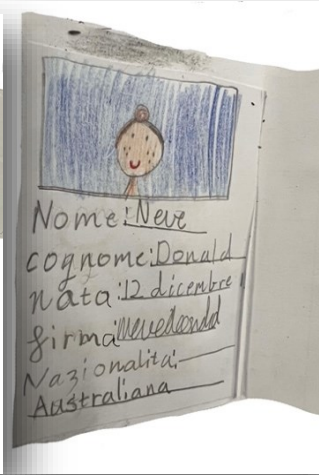 Nome: Neve
cognome: Donald
nata: 12 dicembre
firma: nevedonald
Nazionalita:
Australiana